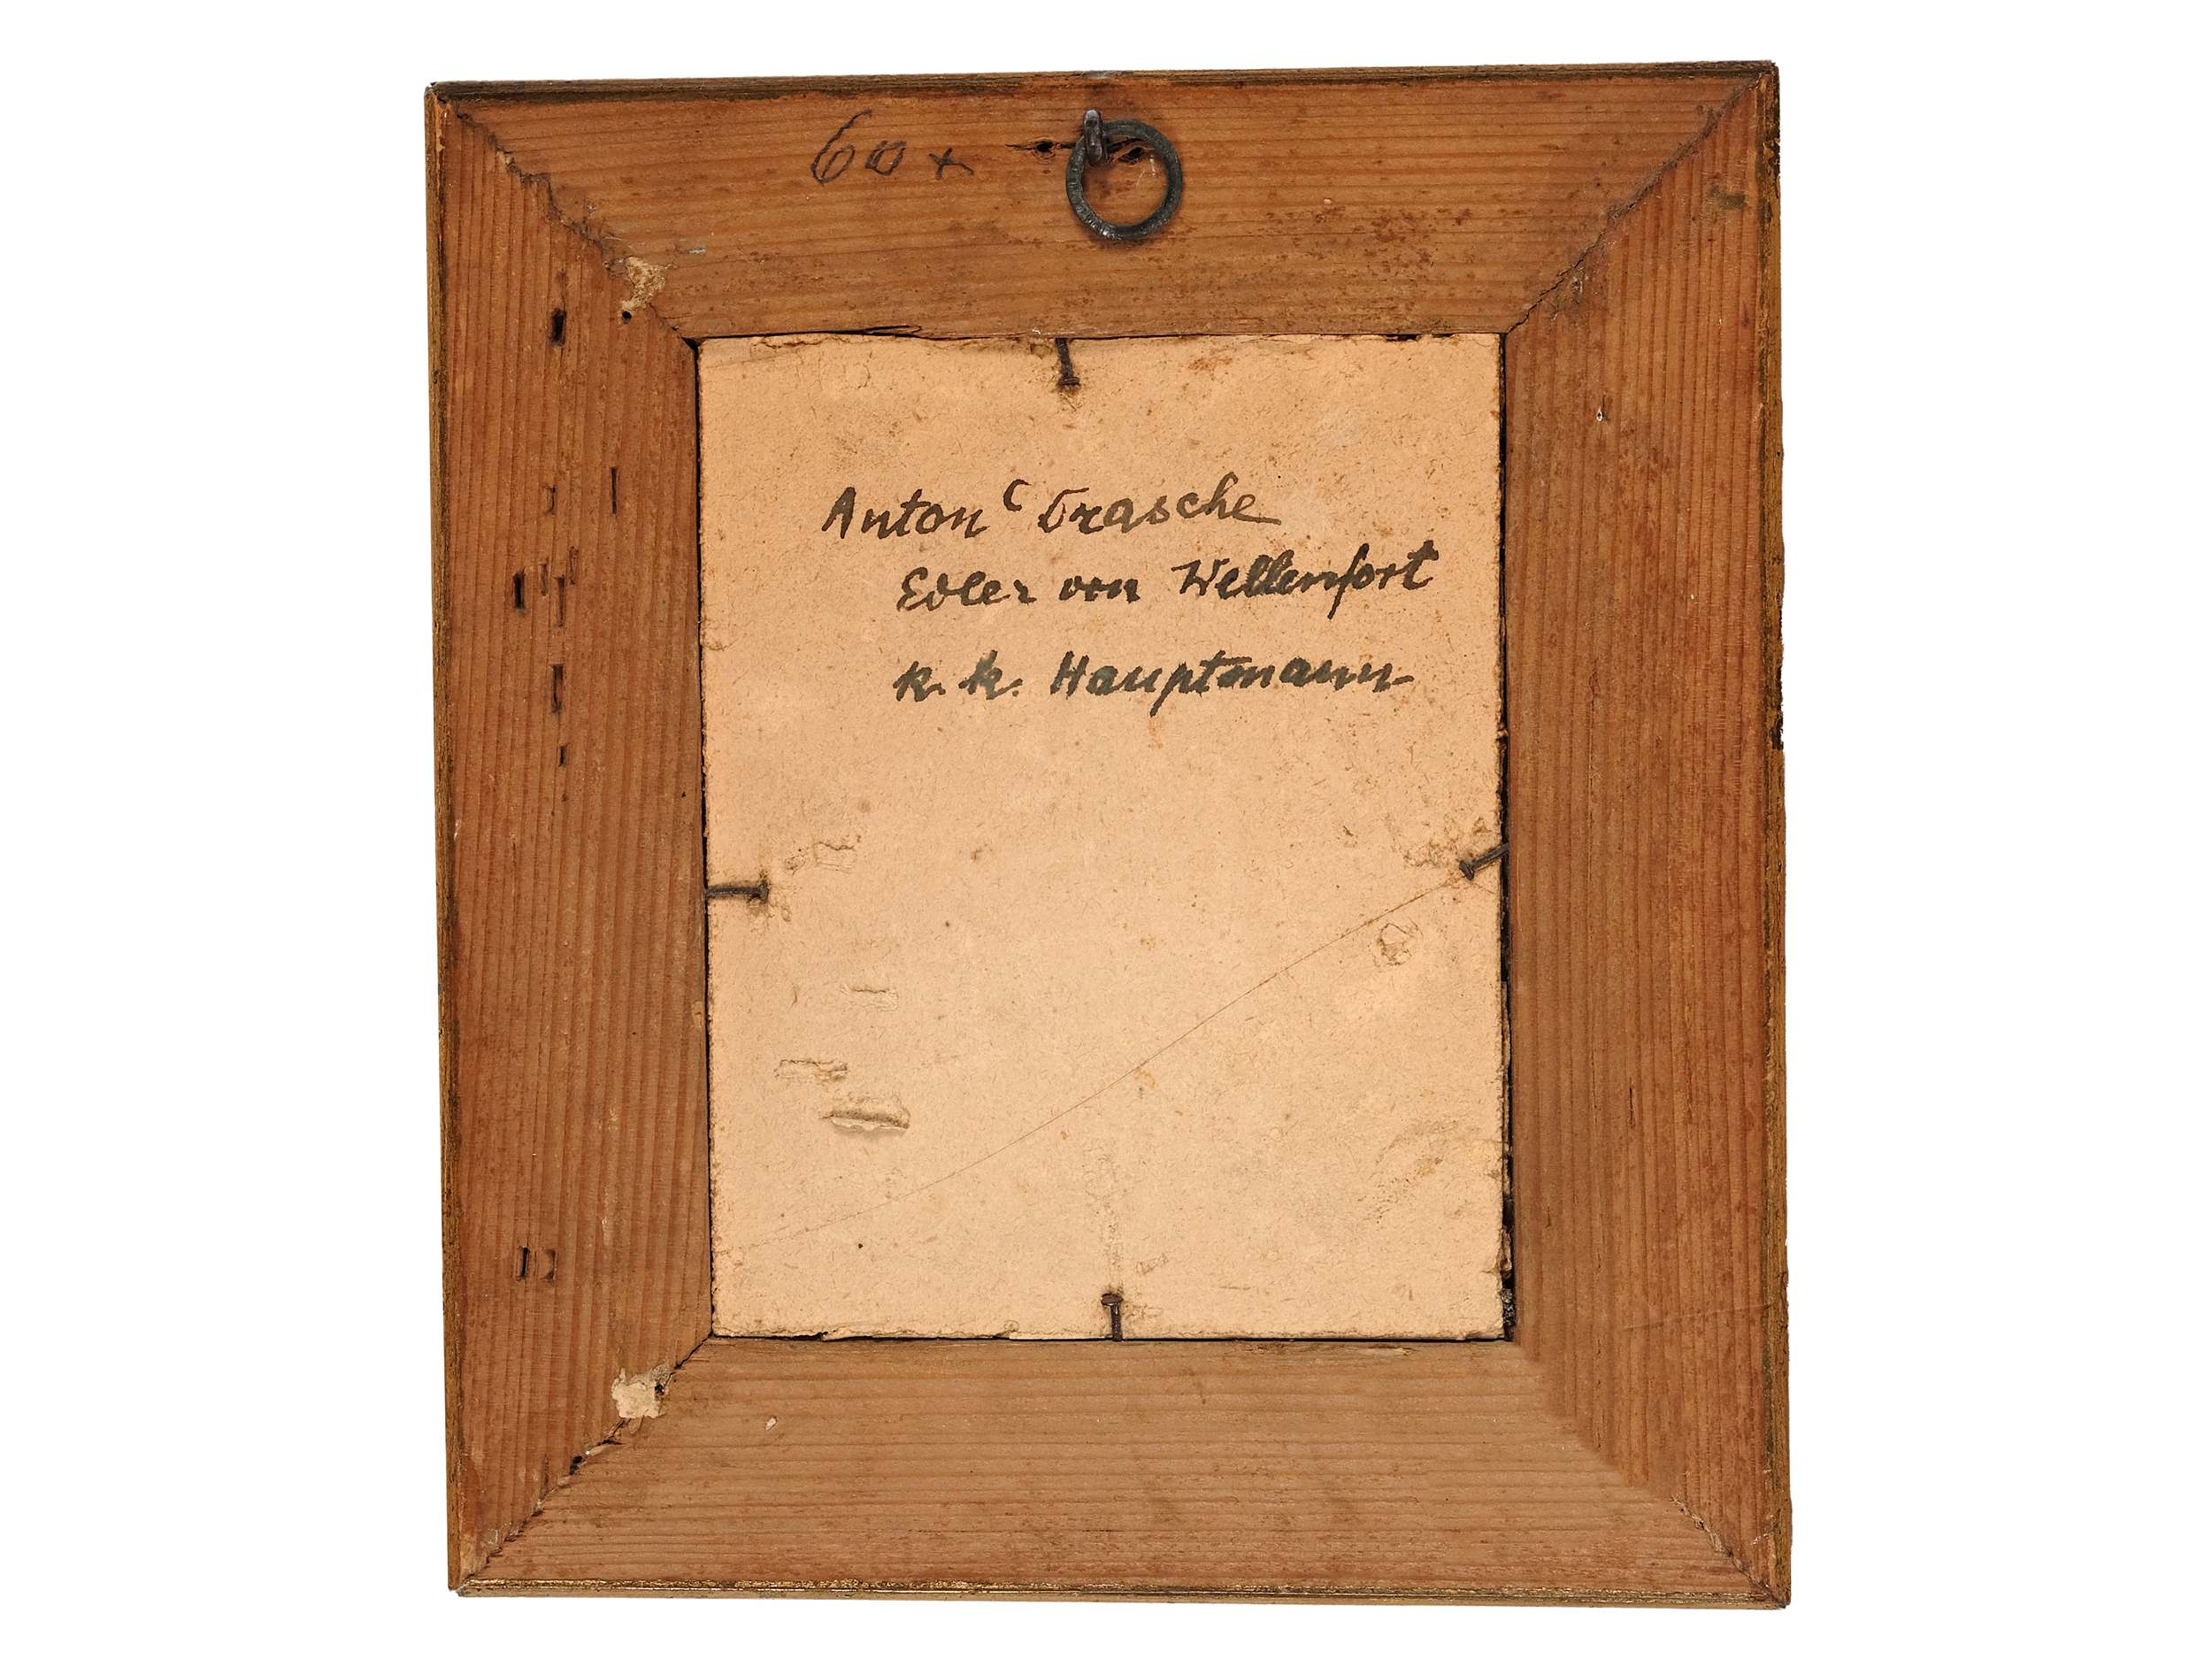 60 x
Anton Drasche
Edler von Wellenfort
k. k. Hauptmann